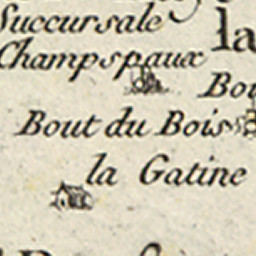 Succursale
la
Champspaux
Bout du Bois
la Gatine